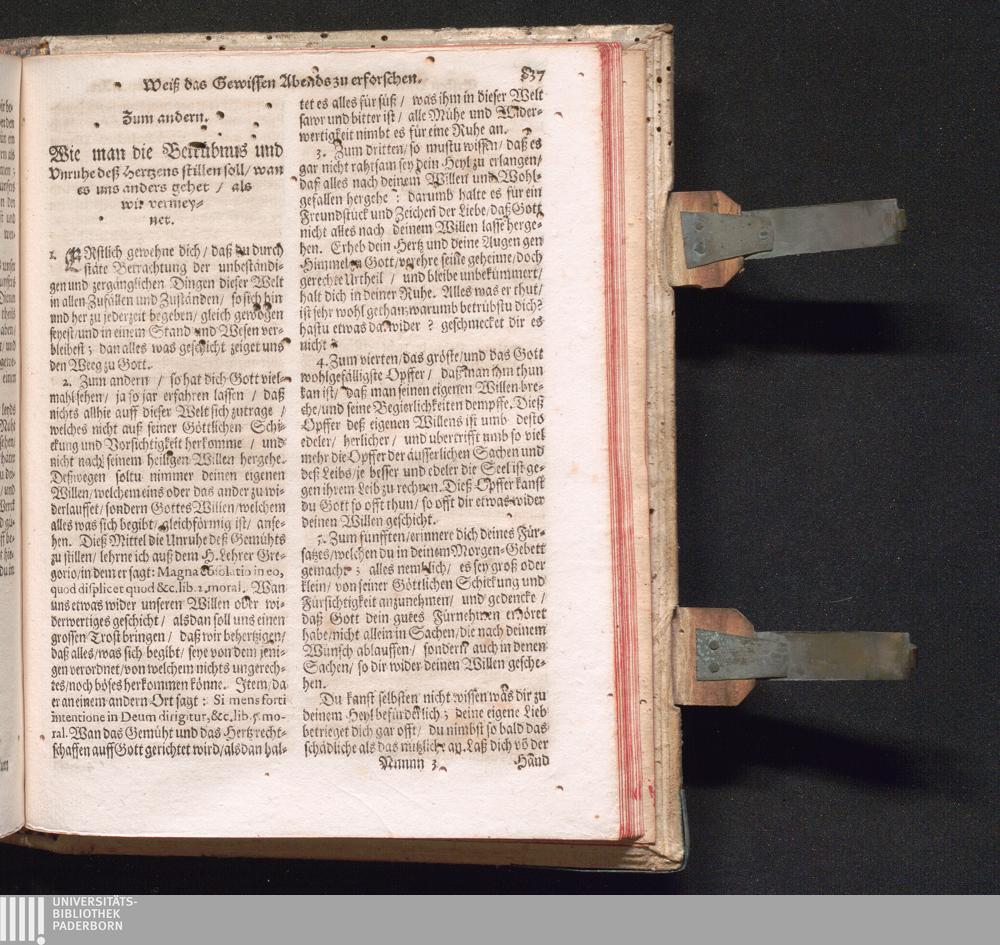 Weiß das Gewissen Abends zu erforschen. 837
Zum andern.
Wie man die Betrübnus und
Unruhe deß Hertzens stillen soll/ wan
es uns anders gehet / als
wir vermey-
net.
1. ERstlich gewehne dich/ daß du durch
stäte Betrachtung der unbeständi-
gen und zergänglichen Dingen dieser Welt
in allen Zufällen und Zuständen/ so sich hin
und her zu jederzeit begeben/ gleich gewogen
seyest/ und in einem Stand und Wesen ver-
bleibest; dan alles was geschicht zeiget uns
den Weeg zu Gott.
2. Zum andern / so hat dich Gott viel-
mahl sehen/ ja so jar erfahren lassen / daß
nichts allhie auff dieser Welt sich zutrage /
welches nicht auß seiner Göttlichen Schi-
ckung und Vorsichtigkeit herkomme / und
nicht nach seinem heiligen Willen hergehe.
Deßwegen soltu nimmer deinen eigenen
Willen/ welchem eins oder das ander zu wi-
derlauffet/ sondern Gottes Willen/ welchem
alles was sich begibt/ gleichförmig ist/ anse-
hen. Dieß Mittel die Unruhe deß Gemühts
zu stillen/ lehrne ich auß dem H. Lehrer Gre-
gorio/ in dem er sagt: Magna cōsolatio in eo,
quod displicet quod &c. lib. 2. moral. Wan
uns etwas wider unseren Willen oder wi-
derwertiges geschicht/ alsdan soll uns einen
grossen Trost bringen/ daß wir behertzigen/
daß alles/ was sich begibt/ seye von dem jeni-
gen verordnet/ von welchem nichts ungerech-
tes/ noch böses herkommen könne. Item/ da
er an einem andern Ort sagt: Si mens forti
intentione in Deum dirigitur, &c, lib. 5. mo-
ral. Wan das Gemüht und das Hertz recht-
schaffen auff Gott gerichtet wird/ alsdan hal-
tet es alles für süß/ was ihm in dieser Welt
sawr und bitter ist/ alle Mühe und Wider-
wertigkeit nimbt es für eine Ruhe an.
3. Zum dritten/ so mustu wissen/ daß es
gar nicht rahtsam sey dein Heyl zu erlangen/
daß alles nach deinem Willen und Wohl-
gefallen hergehe: darumb halte es für ein
Freundstück und Zeichen der Liebe/ daß Gott
nicht alles nach deinem Willen lasse herge-
hen. Erheb dein Hertz und deine Augen gen
Himmel zu Gott/ verehre seine geheime/ doch
gerechte Urtheil / und bleibe unbekümmert/
halt dich in deiner Ruhe. Alles was er thut/
ist sehr wohl gethan/ warumb betrübstu dich?
hastu etwas darwider? geschmecket dir es
nicht?
4. Zum vierten/ das gröste/ und das Gott
wohlgefälligste Opffer/ daß man ihm thun
kan ist/ daß man seinen eigenen Willen bre-
che/ und seine Begierlichkeiten dempffe. Dieß
Opffer deß eigenen Willens ist umb desto
edeler/ herlicher/ und ubertrifft umb so viel
mehr die Opffer der äusserlichen Sachen und
deß Leibs/ je besser und edeler die Seel ist ge-
gen ihrem Leib zu rechnen. Dieß Opffer kanst
du Gott so offt thun/ so offt dir etwas wider
deinen Willen geschicht.
5. Zum fünfften/ erinnere dich deines Für-
satzes/ welchen du in deinem Morgen-Gebett
gemacht; alles nemblich/ es sey groß oder
klein/ von seiner Göttlichen Schickung und
Fürsichtigkeit anzunehmen/ und gedencke/
daß Gott dein gutes Fürnehmen erhöret
habe/ nicht allein in Sachen/ die nach deinem
Wunsch ablauffen/ sondern auch in denen
Sachen/ so dir wider deinen Willen gesche-
hen.
Du kanst selbsten nicht wissen was dir zu
deinem Heyl befürderlich; deine eigene Lieb
betrieget dich gar offt/ du nimbst so bald das
schädliche als das nützliche an. Laß dich võ der
Nnnnn 3 Hand
UNIVERSITÄTS-
BIBLIOTHEK
PADERBORN